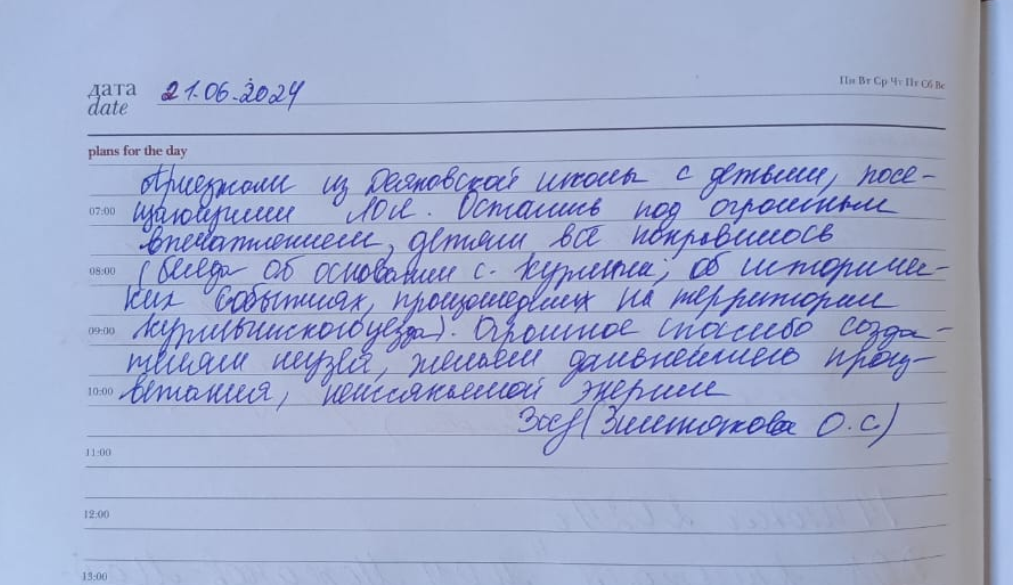 дата 21.06.2024 Пн Вт Ср Чт Пт Сб Вс
date
plans for the day
Приезжали из Деяновской школы с детьми, посе-
07:00 щающими ЛОЛ. Остались под огромным
впечатлением, детям всё понравилось
08:00 (беседа об основании с. Курмыш, об историчес-
ких событиях, произошедших на территории
09:00 Курмышского уезда). Огромное спасибо созда-
телям музея, желаем дальнейшего проц-
10:00 ветания, неиссякаемой энергии
(О.С.)
11:00
12:00
13:00